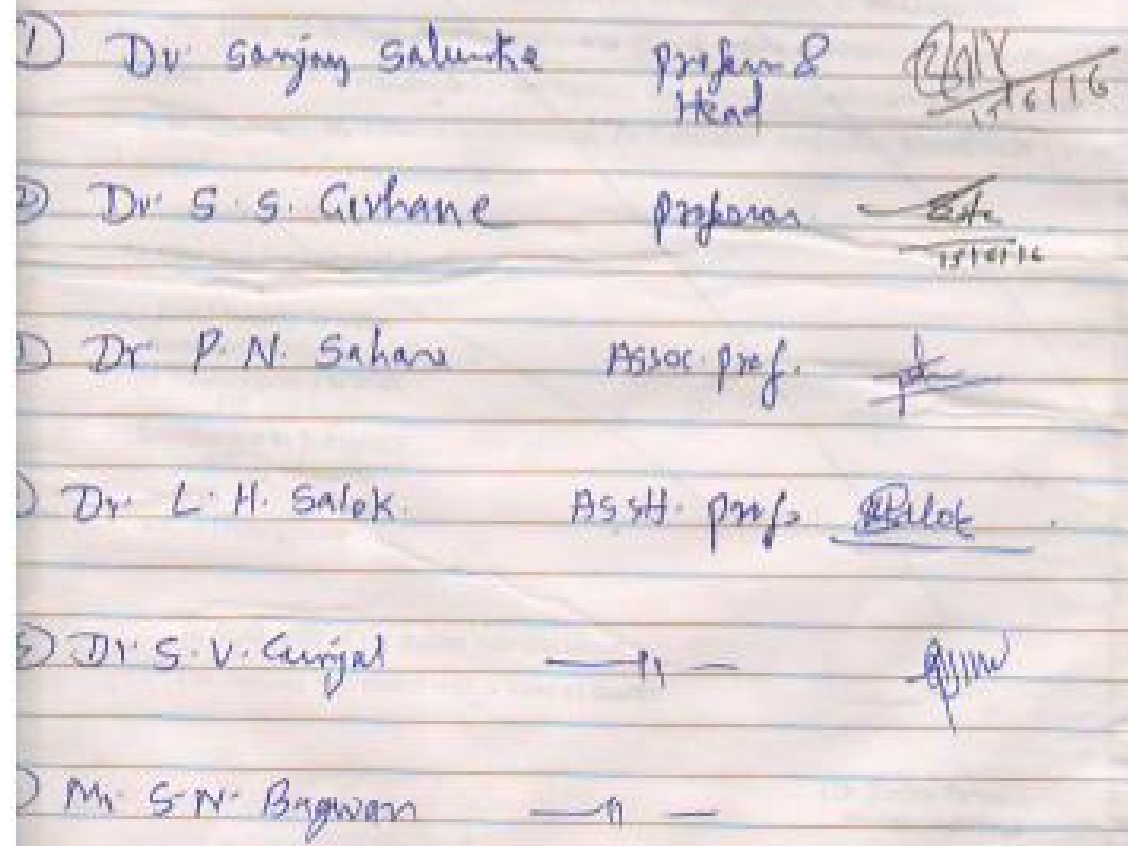 1) Dr Sanjay Salunke Professor &
Head 15/6/16
2) Dr. S. S. Girhane professor
15/6/16
) Dr. P. N. Sahane Assoc. prof.
) Dr. L. H. Salok. Asstt. prof.
5) Dr. S. V. Gunjal —〃—
) Mr. S. N. Bagwan —〃—